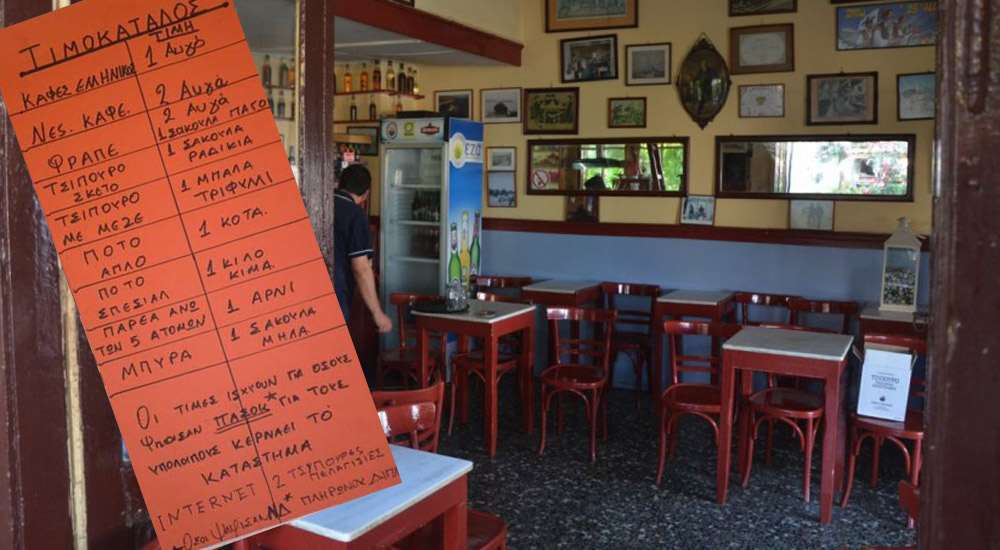 ΤΙΜΟΚΑΤΑΛΟΣ
ΤΙΜΗ
ΚΑΦΕΣ ΕΛΛΗΝΙΚΟΣ 1 Αυγό
ΝΕS. ΚΑΦΕ. 2 Αυγά
ΦΡΑΠΕ 2 Αυγά
ΤΣΙΠΟΥΡΟ ΣΚΕΤΟ 1 ΣΑΚΟΥΛΑ ΠΑΓΟ
ΤΣΙΠΟΥΡΟ ΜΕ ΜΕΖΕ 1 ΣΑΚΟΥΛΑ ΡΑΔΙΚΙΑ
ΠΟΤΟ ΑΠΛΟ 1 ΜΠΑΛΑ ΤΡΙΦΥΛΛΙ
ΠΟΤΟ ΣΠΕΣΙΑΛ 1 ΚΟΤΑ.
ΠΑΡΕΑ ΑΝΩ ΤΩΝ 5 ΑΤΟΜΩΝ 1 ΚΙΛΟ ΚΙΜΑ.
1 ΑΡΝΙ
ΜΠΥΡΑ 1 ΣΑΚΟΥΛΑ ΜΗΛΑ
ΟΙ ΤΙΜΕΣ ΙΣΧΥΟΥΝ ΓΙΑ ΟΣΟΥΣ
ΨΗΦΙΣΑΝ ΠΑΣΟΚ* ΓΙΑ ΤΟΥΣ
ΥΠΟΛΟΙΠΟΥΣ ΚΕΡΝΑΕΙ ΤΟ
ΚΑΤΑΣΤΗΜΑ
INTERNET 2 ΤΣΙΠΟΥΡΕΣ
ΠΕΛΑΓΙΣΙΕΣ
*Οσοι ψήφισαν ΝΔ* ΠΛΗΡΩΝΟΥΝ
ΕΖΑ